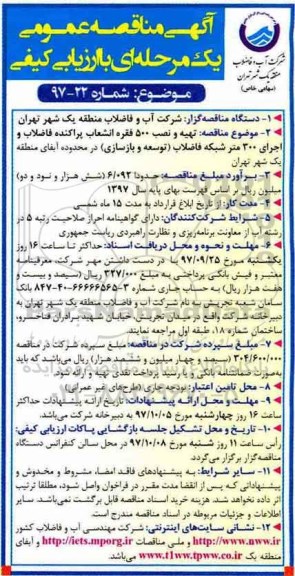 آگهی مناقصه عمومی
یک مرحله‌ای با ارزیابی کیفی
موضوع: شماره ۲۲-۹۷
شرکت آب و فاضلاب
منطقه یک شهر تهران
(سهامی خاص)
۱- دستگاه مناقصه‌گزار: شرکت آب و فاضلاب منطقه یک شهر تهران
۲- موضوع مناقصه: تهیه و نصب ۵۰۰ فقره انشعاب پراکنده فاضلاب و
اجرای ۳۰۰ متر شبکه فاضلاب (توسعه و بازسازی) در محدوده آبفای منطقه
یک شهر تهران
۳- برآورد مبلغ مناقصه: حدودا ۶/۰۹۲ (شش هزار و نود و دو)
میلیون ریال بر اساس فهرست بهای پایه سال ۱۳۹۷
۴- مدت کار: از تاریخ ابلاغ قرارداد به مدت ۱۵ ماه شمسی
۵- شرایط شرکت‌کنندگان: دارای گواهینامه احراز صلاحیت رتبه ۵ در
رشته آب از معاونت برنامه‌ریزی و نظارت راهبردی ریاست جمهوری
۶- مهلت و نحوه و محل دریافت اسناد: حداکثر تا ساعت ۱۶ روز
یکشنبه مورخ ۹۷/۰۹/۲۵ در دست داشتن مهر شرکت، معرفینامه
معتبر و فیش بانکی پرداختی به مبلغ ۳۲۷/۰۰۰ ریال (سیصد و بیست و
هفت هزار ریال) به حساب جاری شماره
سامان شعبه تجریش به نام شرکت آب و فاضلاب منطقه یک شهر تهران به
دبیرخانه شرکت واقع در میدان تجریش، خیابان شهید
ساختمان شماره ۱۸، طبقه اول مراجعه نمایند.
۷- مبلغ سپرده شرکت در مناقصه: مبلغ سپرده شرکت در مناقصه
۳۰۴/۶۰۰/۰۰۰ (سیصد و چهار میلیون و ششصد هزار) ریال می‌باشد که باید
به‌صورت ضمانتنامه بانکی یا رسید پرداخت نقدی وجه ارائه گردد.
۸- محل تامین اعتبار: بودجه جاری (طرح‌های غیر عمرانی)
۹- مهلت و محل ارائه پیشنهادات: تاریخ ارائه پیشنهادات حداکثر
ساعت ۱۶ روز چهارشنبه مورخ ۹۷/۱۰/۰۵ به دبیرخانه شرکت می‌باشد.
۱۰- تاریخ و محل تشکیل جلسه بازگشایی پاکات ارزیابی کیفی:
رأس ساعت ۱۱ روز شنبه مورخ ۹۷/۱۰/۰۸ در محل سالن کنفرانس دستگاه
مناقصه‌گزار برگزار می‌گردد.
۱۱- سایر شرایط: به پیشنهادهای فاقد امضا، مشروط و مخدوش و
پیشنهاداتی که پس از انقضا مدت مقرر در فراخوان واصل شود، مطلقا ترتیب
اثر داده نخواهد شد. هزینه خرید اسناد مناقصه قابل برگشت نمی‌باشد. سایر
اطلاعات و جزئیات مربوطه در اسناد مناقصه مندرج است.
۱۲- نشانی سایت‌های اینترنتی: شرکت مهندسی آب و فاضلاب کشور
http://www.nww.ir و ملی مناقصات http://iets.mporg.ir و آبفای
منطقه یک http://www.t1ww.tpww.co.ir می‌باشد.